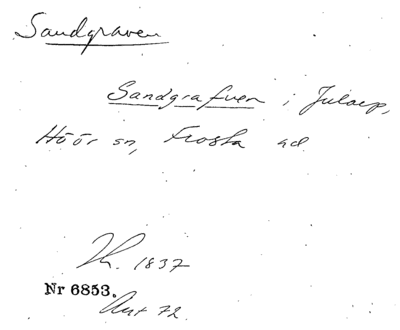 Sandgraven
Sandgrafven i Jularp,
Höör sn, Frosta hd
Th. 1837
Nr 6853.
Ant 72.